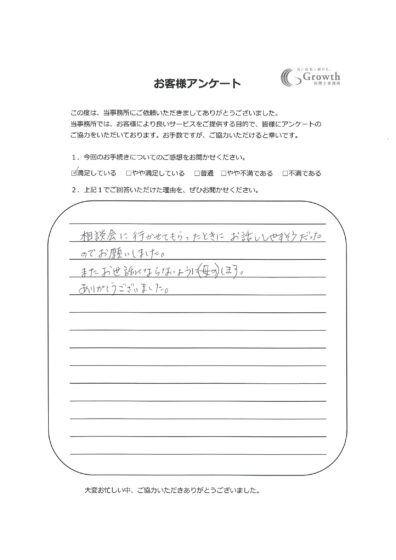 Growth
税理士事務所
お客様アンケート
この度は、当事務所にご依頼いただきましてありがとうございました。
当事務所では、お客様により良いサービスをご提供する目的で、皆様にアンケートの
ご協力をいただいております。お手数ですが、ご協力いただけると幸いです。
1．今回のお手続きについてのご感想をお聞かせください。
☑満足している □やや満足している □普通 □やや不満である □不満である
2．上記1でご回答いただけた理由を、ぜひお聞かせください。
相談会に行かせてもらったときに お話ししやすそうだった
のでお願いしました。
またお世話にならないように(母の)します。
ありがとうございました。
大変お忙しい中、ご協力いただきありがとうございました。